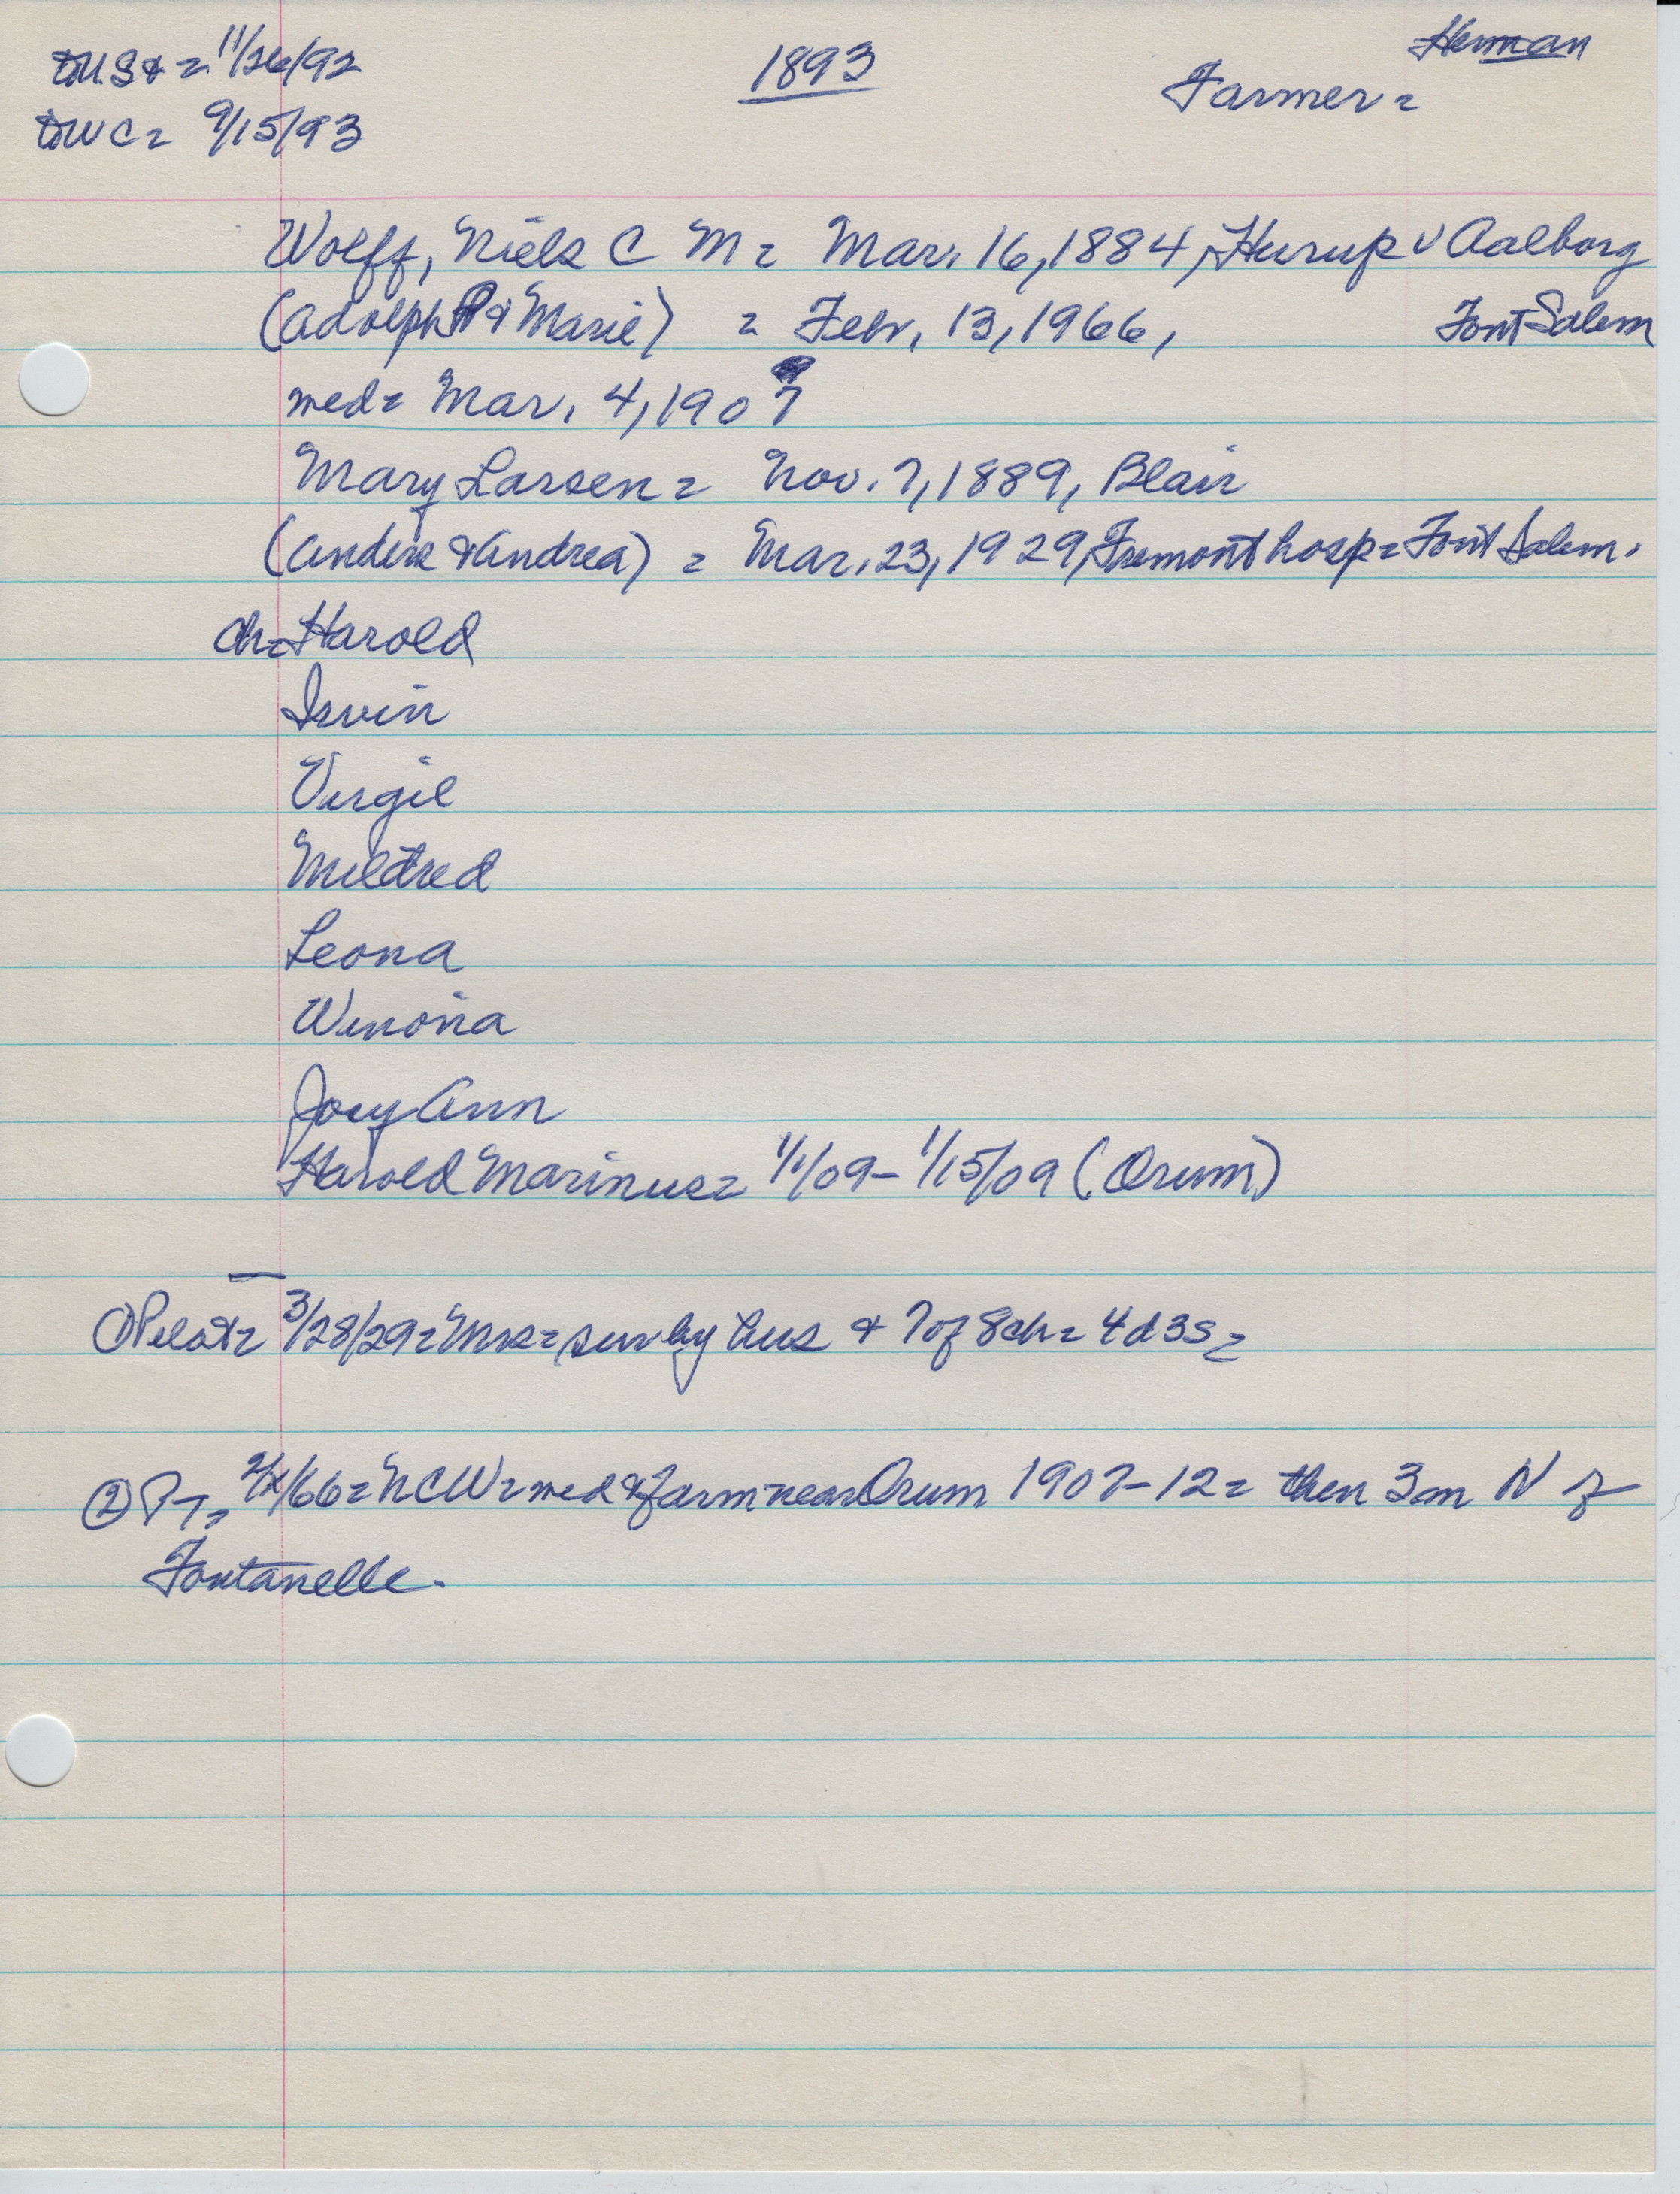 toUS = 11/26/92
toWC = 9/15/93
1893
Herman
Farmer =
Wolff, Niels C M = Mar. 16, 1884, Hurup v Aalborg
(Adolph P & Marie) = Febr. 13, 1966, Font Salem
med = Mar. 4, 1907
Mary Larsen = Nov. 7, 1889, Blair
(Anders & Andrea) = Mar. 23, 1929, Fremont hosp = Font Salem.
ch = Harold
Irvin
Virgil
Mildred
Leona
Winona
Joey Ann
Harold Marinus = 1/1/09 - 1/15/09 (Orum)
① Pilot = 3/28/29 = Mrs = surv by hus & 7 of 8 ch = 4d 3s =
② PT = 2/x/66 = NCW = med & farm near Orum 1907-12 = then 3m N of
Fontanelle.